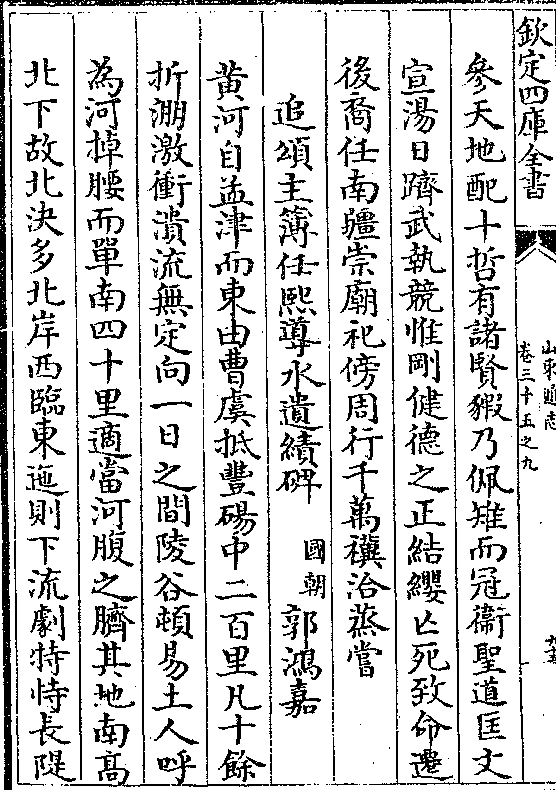 欽定四庫全書
山東通志
卷三十五之九
參天地配十哲有諸賢豭乃佩雉而冠衞聖道匡文
宣湯日躋武執競惟剛健德之正結纓亡死致命遷
後裔任南疆崇廟祀傍周行千萬禩洽蒸嘗
追頌主簿任熙導水遺績碑 國朝 郭鴻嘉
黄河自孟津而東由曹虞抵豐碭中二百里凡十餘
折湍激衝潰流無定向一日之間陵谷頓易土人呼
為河掉腰而單南四十里適當河腹之臍其地南高
北下故北決多北岸西臨東迤則下流劇特恃長隄